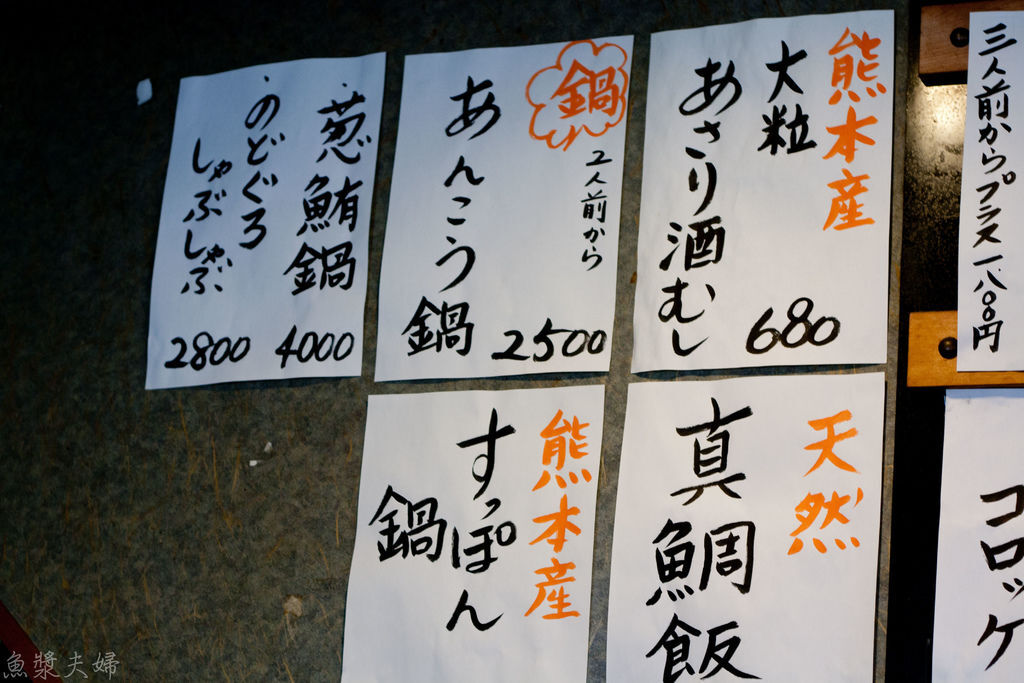 三人前からプラス一八〇〇円
熊本産
大粒
あさり酒むし
680
鍋
2人前から
あんこう鍋
2500
葱鮪鍋
4000
のどぐろ
しゃぶしゃぶ
2800
コロッケ
天然
真鯛飯
熊本産
すっぽん
鍋
魚漿夫婦